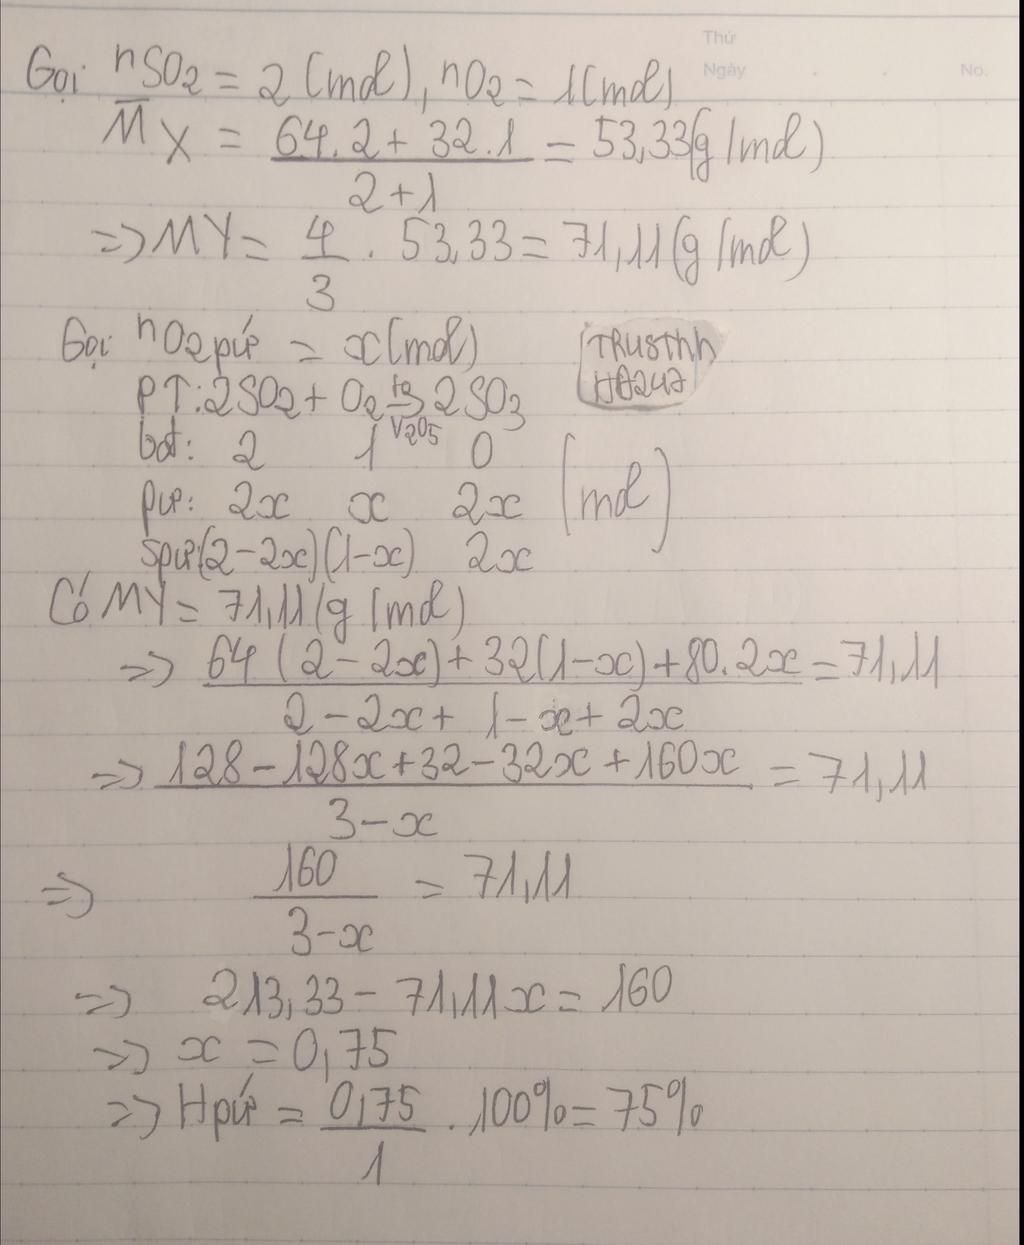 Thứ
Ngày . . No.
Gọi nSO2 = 2 (mol), nO2 = 1(mol)
M̅X = 64.2 + 32.1 / 2+1 = 53,33(g/mol)
=> MY = 4/3 . 53,33 = 71,11(g/mol)
Gọi nO2pứ = x(mol)
TRUSThh
HĐ247
PT: 2SO2 + O2 to⇌V2O5 2SO3
bđ: 2 1 0
pứ: 2x x 2x (mol)
spứ(2-2x)(1-x) 2x
Có MY = 71,11(g/mol)
=> 64(2-2x)+32(1-x)+80.2x / 2-2x+1-x+2x = 71,11
=> 128-128x+32-32x+160x / 3-x = 71,11
=> 160 / 3-x = 71,11
=> 213,33 - 71,11x = 160
=> x = 0,75
=> Hpứ = 0,75 / 1 . 100% = 75%